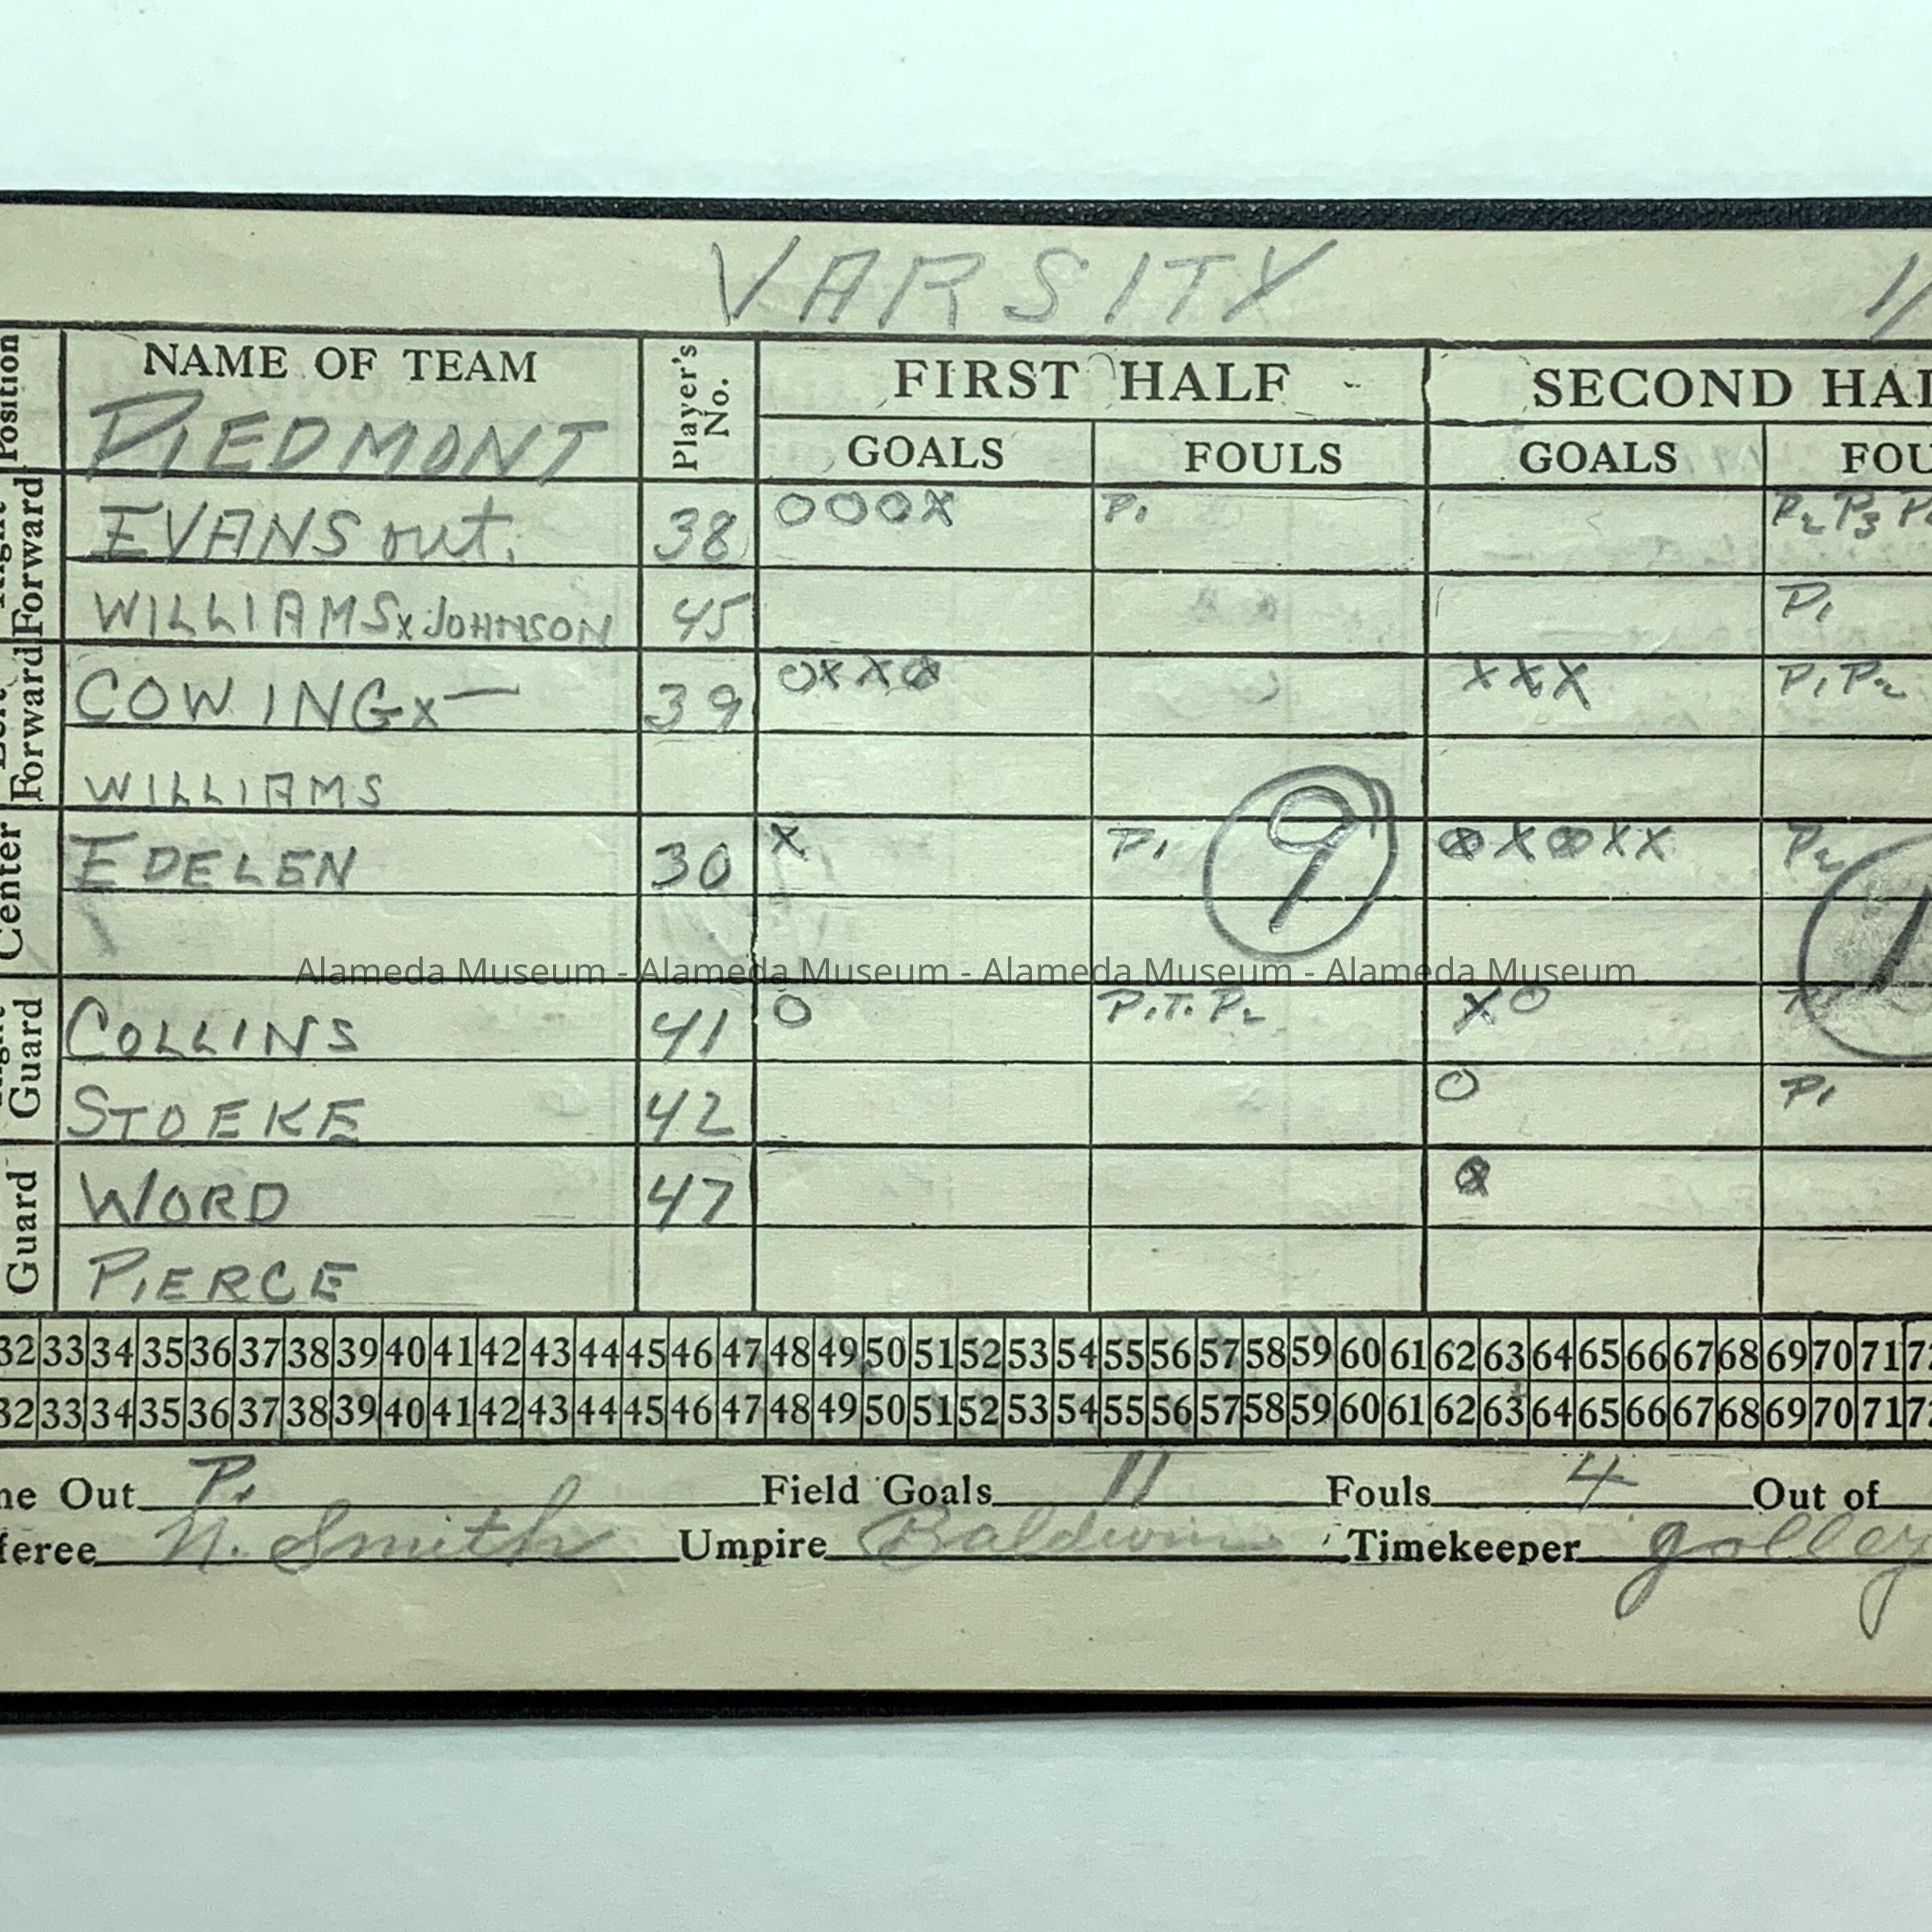 VARSITY 1/
Position NAME OF TEAM Player's No. FIRST HALF SECOND HAL
PIEDMONT GOALS FOULS GOALS FOU
Forward EVANS out. 38 OOOX P1 P2 P3 P
WILLIAMS x JOHNSON 45 P1
Forward COWING x — 39 XXX P1 P2
WILLIAMS
Center EDELEN 30 X P1 9 P2
Alameda Museum - Alameda Museum - Alameda Museum - Alameda Museum
Guard COLLINS 41 O P.T. P2 XO
STOEKE 42 O P1
Guard WORD 47
PIERCE
32 33 34 35 36 37 38 39 40 41 42 43 44 45 46 47 48 49 50 51 52 53 54 55 56 57 58 59 60 61 62 63 64 65 66 67 68 69 70 71 7
32 33 34 35 36 37 38 39 40 41 42 43 44 45 46 47 48 49 50 51 52 53 54 55 56 57 58 59 60 61 62 63 64 65 66 67 68 69 70 71 7
me Out P1 Field Goals 11 Fouls 4 Out of
feree N. Smith Umpire Baldwin Timekeeper golley